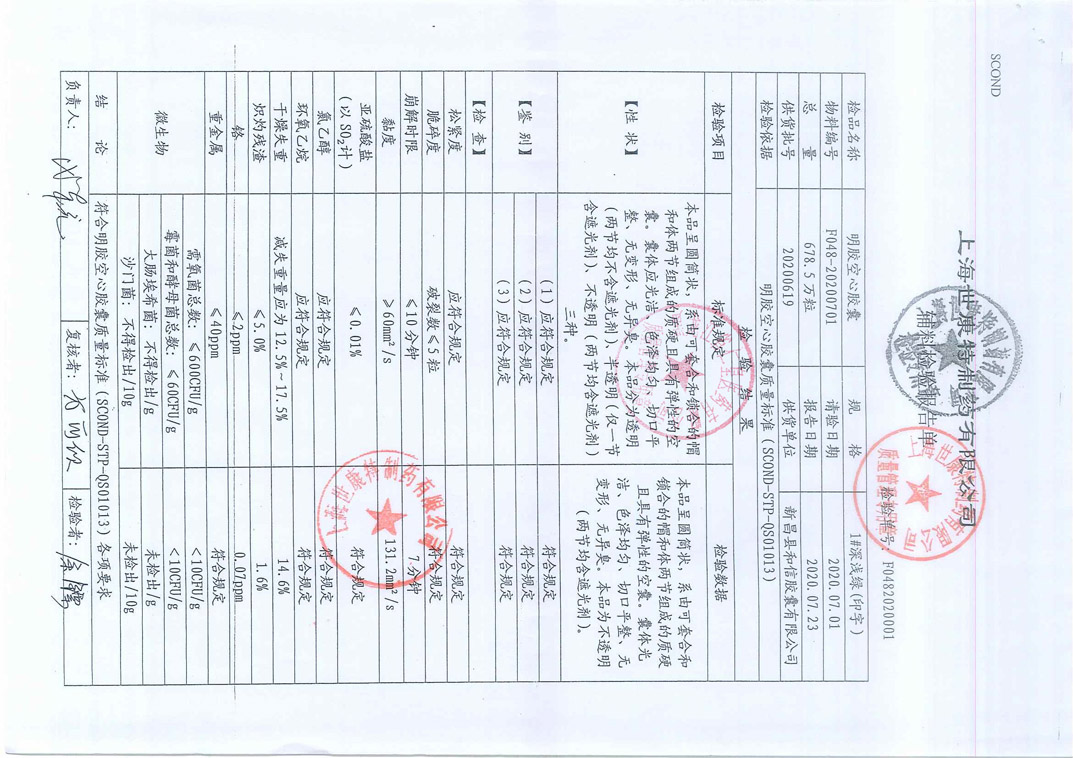 SCOND
上海世康特制药有限公司
辅料检验报告单
检验单号: F0482020001
检品名称 明胶空心胶囊 规 格 1#深浅绿(印字)
物料编号 F048-20200701 请验日期 2020.07.01
总 量 678.5万粒 报告日期 2020.07.23
供货批号 20200619 供货单位 新昌县和信胶囊有限公司
检验依据 明胶空心胶囊质量标准(SCOND-STP-QS01013)
检 验 结 果
检验项目 标准规定 检验数据
【性 状】
本品呈圆筒状、系由可套合和锁合的帽
和体两节组成的质硬且具有弹性的空
囊。囊体应光洁、色泽均匀、切口平
整、无变形、无异臭。本品分为透明
(两节均不含遮光剂)、半透明(仅一节
含遮光剂)、不透明(两节均含遮光剂)
三种。
本品呈圆筒状、系由可套合和
锁合的帽和体两节组成的质硬
且具有弹性的空囊。囊体光
洁、色泽均匀、切口平整、无
变形、无异臭。本品为不透明
(两节均含遮光剂)。
【鉴 别】
(1)应符合规定 符合规定
(2)应符合规定 符合规定
(3)应符合规定 符合规定
【检 查】
松紧度 应符合规定 符合规定
脆碎度 破裂数≤5粒 符合规定
崩解时限 ≤10分钟 7分钟
黏度 ≥60mm²/s 131.2mm²/s
亚硫酸盐
(以SO₂计) ≤0.01% 符合规定
氯乙醇 应符合规定 符合规定
环氧乙烷 应符合规定 符合规定
干燥失重 减失重量应为12.5%-17.5% 14.6%
炽灼残渣 ≤5.0% 1.6%
铬 ≤2ppm 0.07ppm
重金属 ≤40ppm 符合规定
微生物 需氧菌总数: ≤600CFU/g <10CFU/g
霉菌和酵母菌总数: ≤60CFU/g <10CFU/g
大肠埃希菌: 不得检出/g 未检出/g
沙门菌: 不得检出/10g 未检出/10g
结 论 符合明胶空心胶囊质量标准(SCOND-STP-QS01013)各项要求
负责人: 复核者: 检验者: